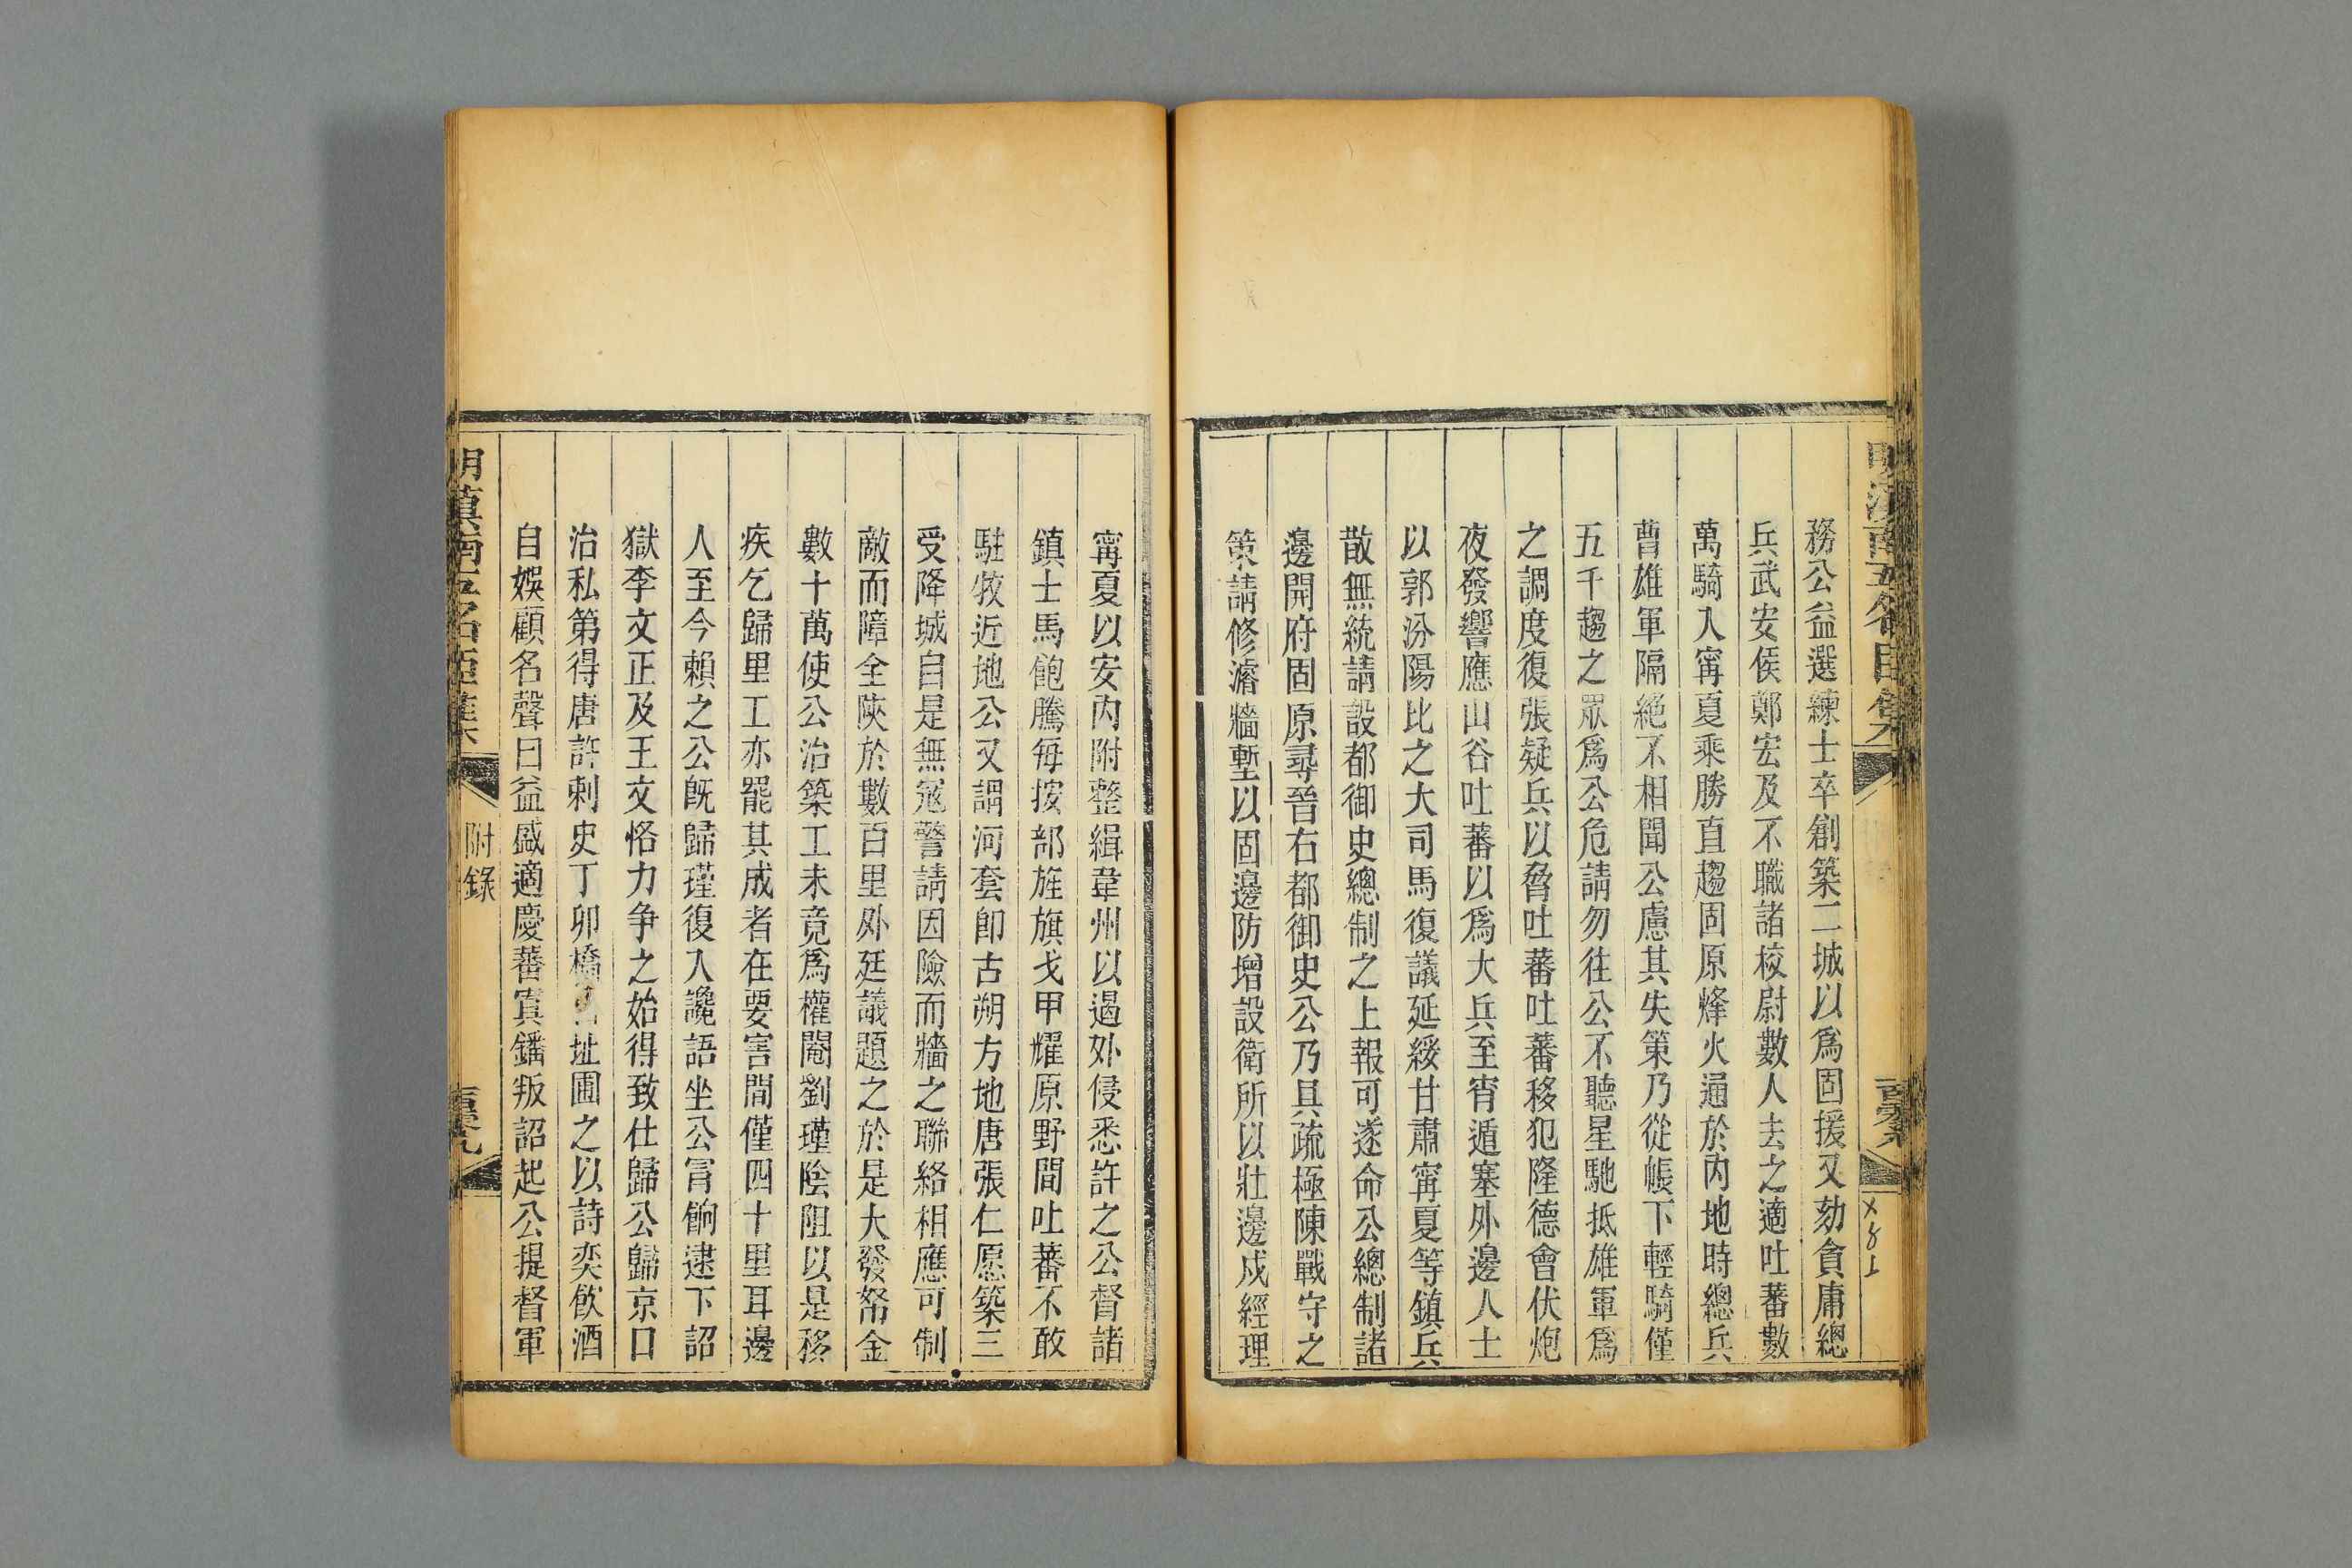 務公益選練士卒創築二城以爲固援又劾貪庸總
兵武安侯鄭宏及不職諸校尉數人去之適吐蕃數
萬騎入甯夏乘勝直趨固原烽火通於內地時總兵
曹雄軍隔絕不相聞公慮其失策乃從帳下輕騎僅
五千趨之眾爲公危請勿往公不聽星馳抵雄軍爲
之調度復張疑兵以脅吐蕃吐蕃移犯隆德會伏炮
夜發響應山谷吐蕃以爲大兵至宵遁塞外邊人士
以郭汾陽比之大司馬復議延綏甘肅甯夏等鎮兵
散無統請設都御史總制之上報可遂命公總制諸
邊開府固原尋晉右都御史公乃具疏極陳戰守之
策請修濬牆塹以固邊防增設衛所以壯邊戍經理
甯夏以安內附整緝韋州以遏外侵悉許之公督諸
鎮士馬飽騰每按部旌旗戈甲耀原野間吐蕃不敢
駐牧近地公又謂河套卽古朔方地唐張仁愿築三
受降城自是無寇警請因險而牆之聯絡相應可制
敵而障全陝於數百里外廷議題之於是大發帑金
數十萬使公治築工未竟爲權閹劉瑾陰阻以是移
疾乞歸里工亦罷其成者在要害間僅四十里耳邊
人至今賴之公旣歸瑾復入讒語坐公冒餉逮下詔
獄李文正及王文恪力爭之始得致仕歸公歸京口
治私第得唐許刺史丁卯橋址圃之以詩奕飲酒
自娛顧名聲日益盛適慶蕃寘鐇叛詔起公提督軍
明滇南五名臣集
附錄